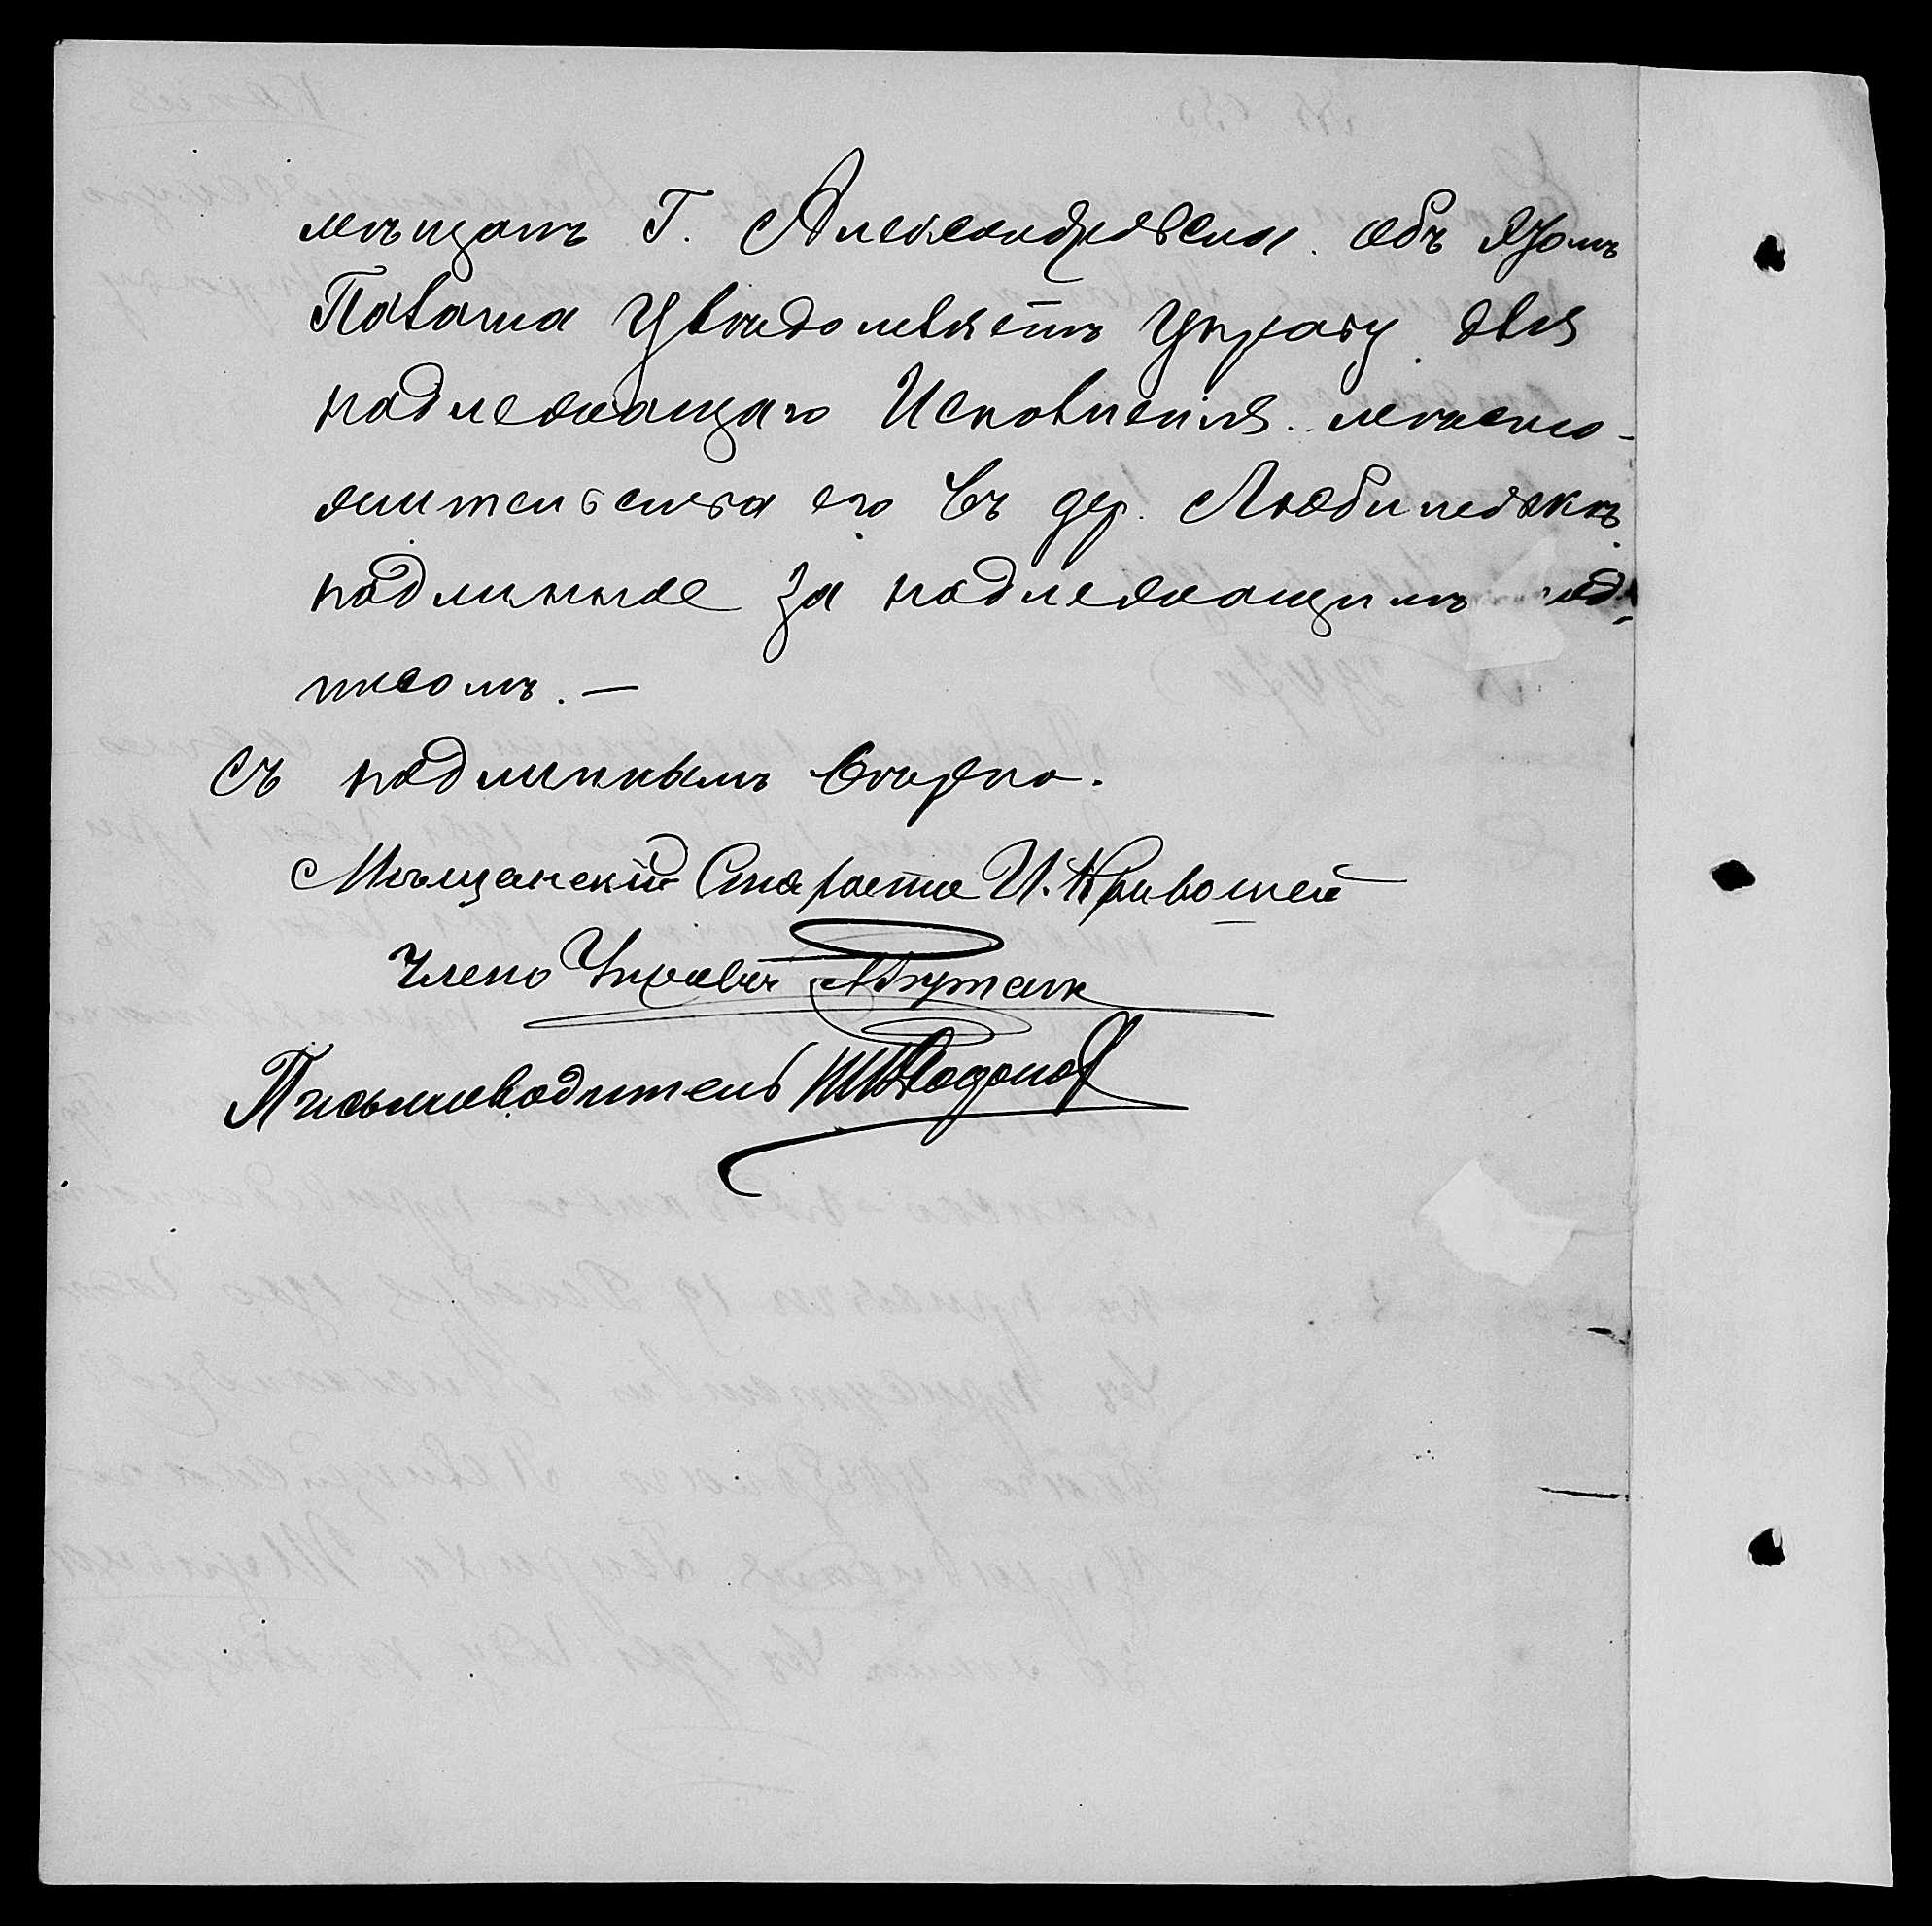 мѣщанъ Г. Александровска. объ этомъ
Палата Увѣдомляетъ Управу для
надлежащаго Исполненія. мѣсто-
жительства его въ дер.
подлинное за надлежащимъ под-
писомъ. —
Съ подлиннымъ вѣрно.
Мѣщанскій Староста И. Кривошей
Членъ Управы
Письмоводитель